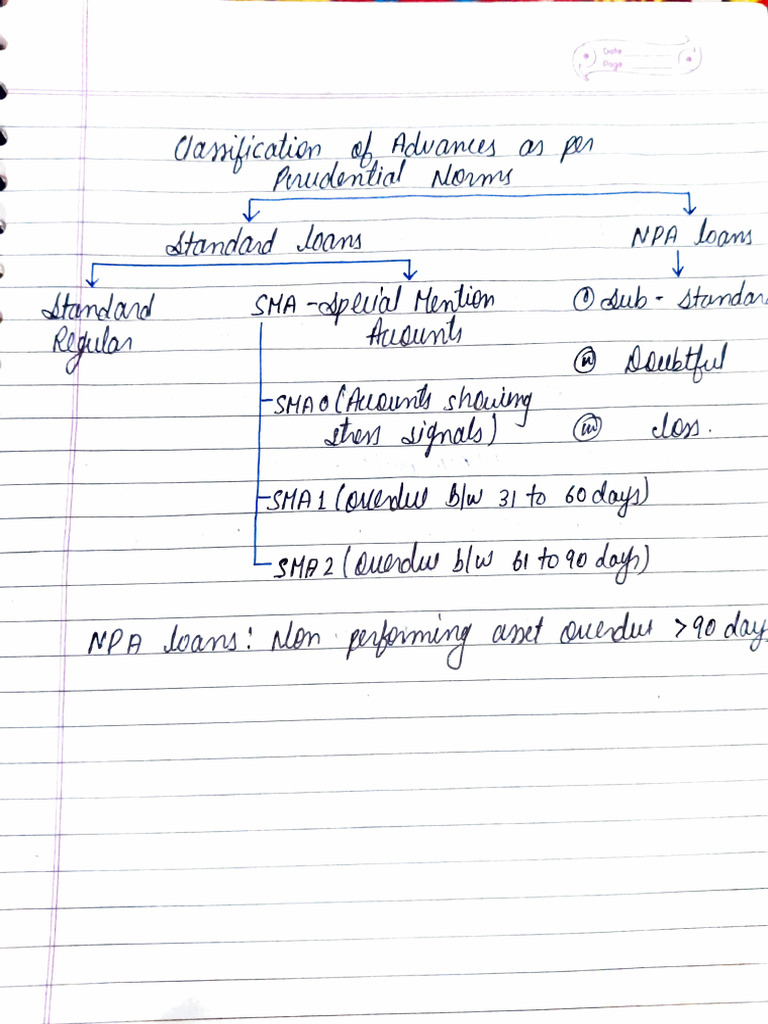 Date
Page
Classification of Advances as per
Prudential Norms
Standard loans
NPA loans
Standard
Regular
SMA - Special Mention
Accounts
SMA 0 (Accounts showing
stress signals)
SMA 1 (Overdue b/w 31 to 60 days)
SMA 2 (Overdue b/w 61 to 90 days)
(i) Sub - Standar
(ii) Doubtful
(iii) Loss.
NPA loans: Non performing asset overdue > 90 day